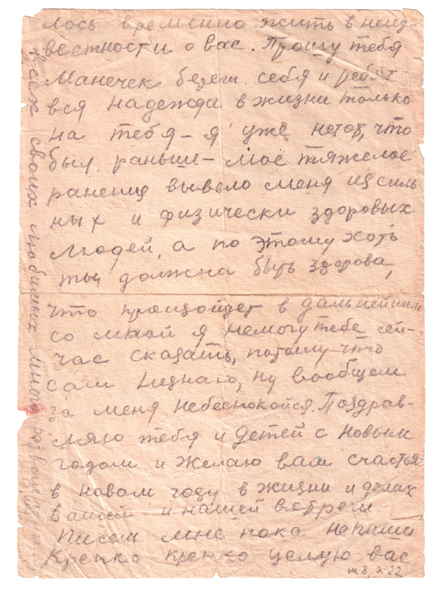 лось временно жить в неиз-
вестности о вас. Прошу тебя
Манечек береги себя и ребят
вся надежда в жизни только
на тебя – я уже нетот, что
был раньше – моё тяжелое
ранение вывело меня из силь
ных и физически здоровых
людей, а по этому хоть
ты должна быть здорова,
что произойдет в дальнейшем
со мной я немогу тебе сей-
час сказать, потому что
сам незнаю, ну вообщем
за меня небеспокойся. Поздрав-
ляю тебя и детей с новым
годом и желаю вам счастья
в новом году в жизни и делах
вашей и нашей встречи
Писем мне пока непиши
Крепко крепко целую вас
всех своих любимых много